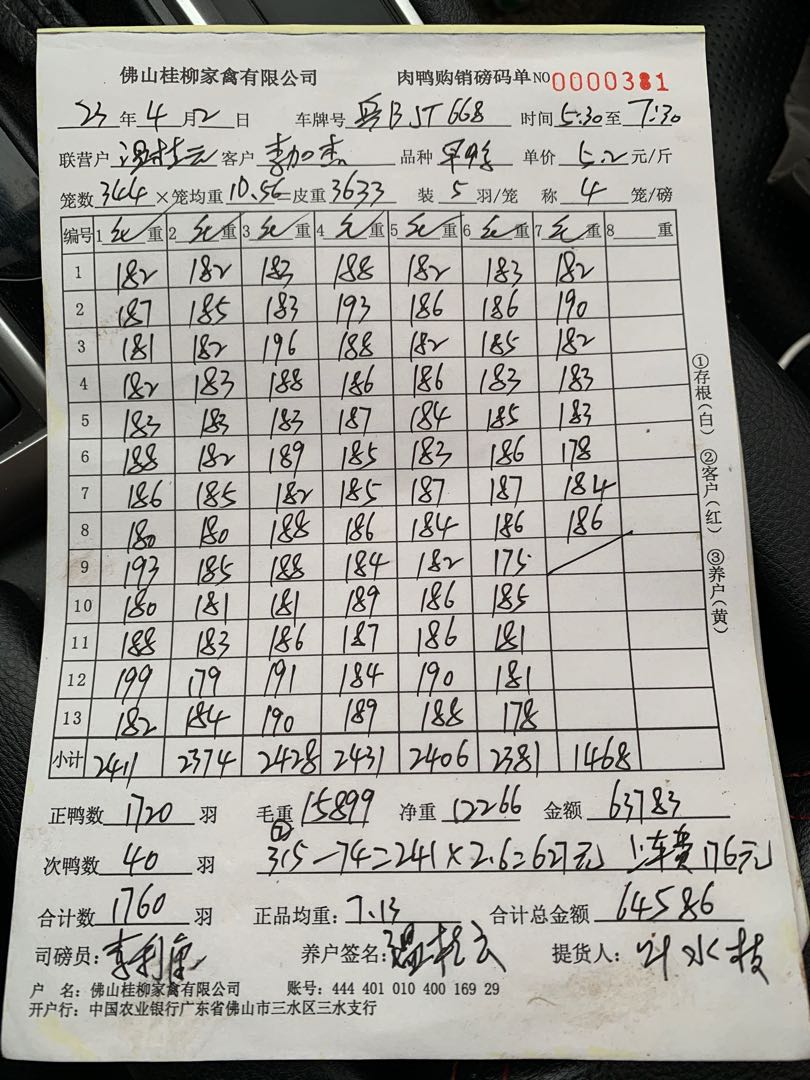 佛山桂柳家禽有限公司 肉鸭购销磅码单 NO 0000381
23年4月2日 车牌号 粤BJT668 时间5:30至7:30
联营户 温桂云 客户 李加杰 品种 单价 5.2 元/斤
笼数344×笼均重10.56=皮重3633 装5羽/笼 称4笼/磅
编号 1 毛重 2 毛重 3 毛重 4 毛重 5 毛重 6 毛重 7 毛重 8 重
1 182 182 183 188 182 183 182
2 187 185 183 193 186 186 190
3 181 182 196 188 182 185 182
4 182 183 188 186 186 183 183
5 183 183 183 187 184 185 183
6 188 182 189 185 183 186 178
7 186 185 182 185 187 187 184
8 180 180 188 186 184 186 186
9 193 185 188 184 182 175
10 180 181 181 189 186 185
11 188 183 186 187 186 181
12 199 179 191 184 190 181
13 182 184 190 189 188 178
小计 2411 2374 2428 2431 2406 2381 1468
正鸭数 1720 羽 毛重 15899 净重 12266 金额 63783
次鸭数 40 羽 315-74=241×2.6=627元 上车费176元
合计数 1760 羽 正品均重: 7.13 合计总金额 64586
司磅员: 养户签名: 温桂云 提货人: 叶水枝
户 名: 佛山桂柳家禽有限公司 账号: 444 401 010 400 169 29
开户行: 中国农业银行广东省佛山市三水区三水支行
①存根(白) ②客户(红) ③养户(黄)